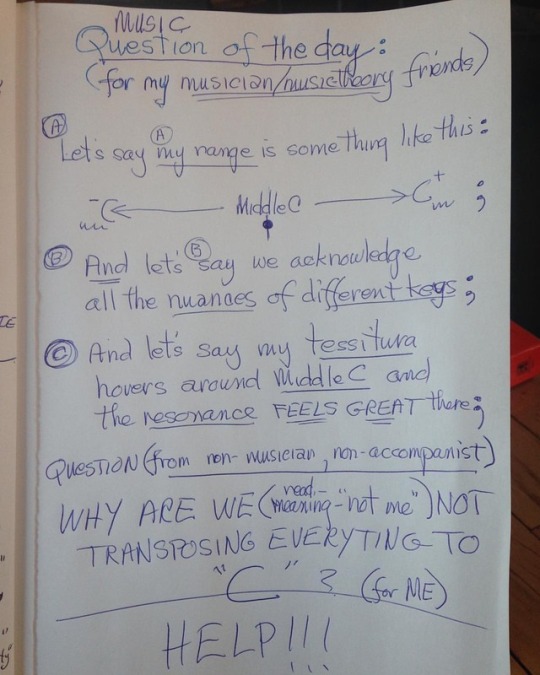 MUSIC
Question of the day:
(for my musician/music theory friends)
A
Let's say my range is something like this:
A
C ← Middle C → C ;
B And let's say we acknowledge
B
all the nuances of different keys;
C And let's say my tessitura
hovers around Middle C and
the resonance FEELS GREAT there;
QUESTION (from non-musician, non-accompanist)
WHY ARE WE (read- meaning-"not me") NOT
TRANSPOSING EVERYTING TO
"C" ? (for ME)
HELP!!!